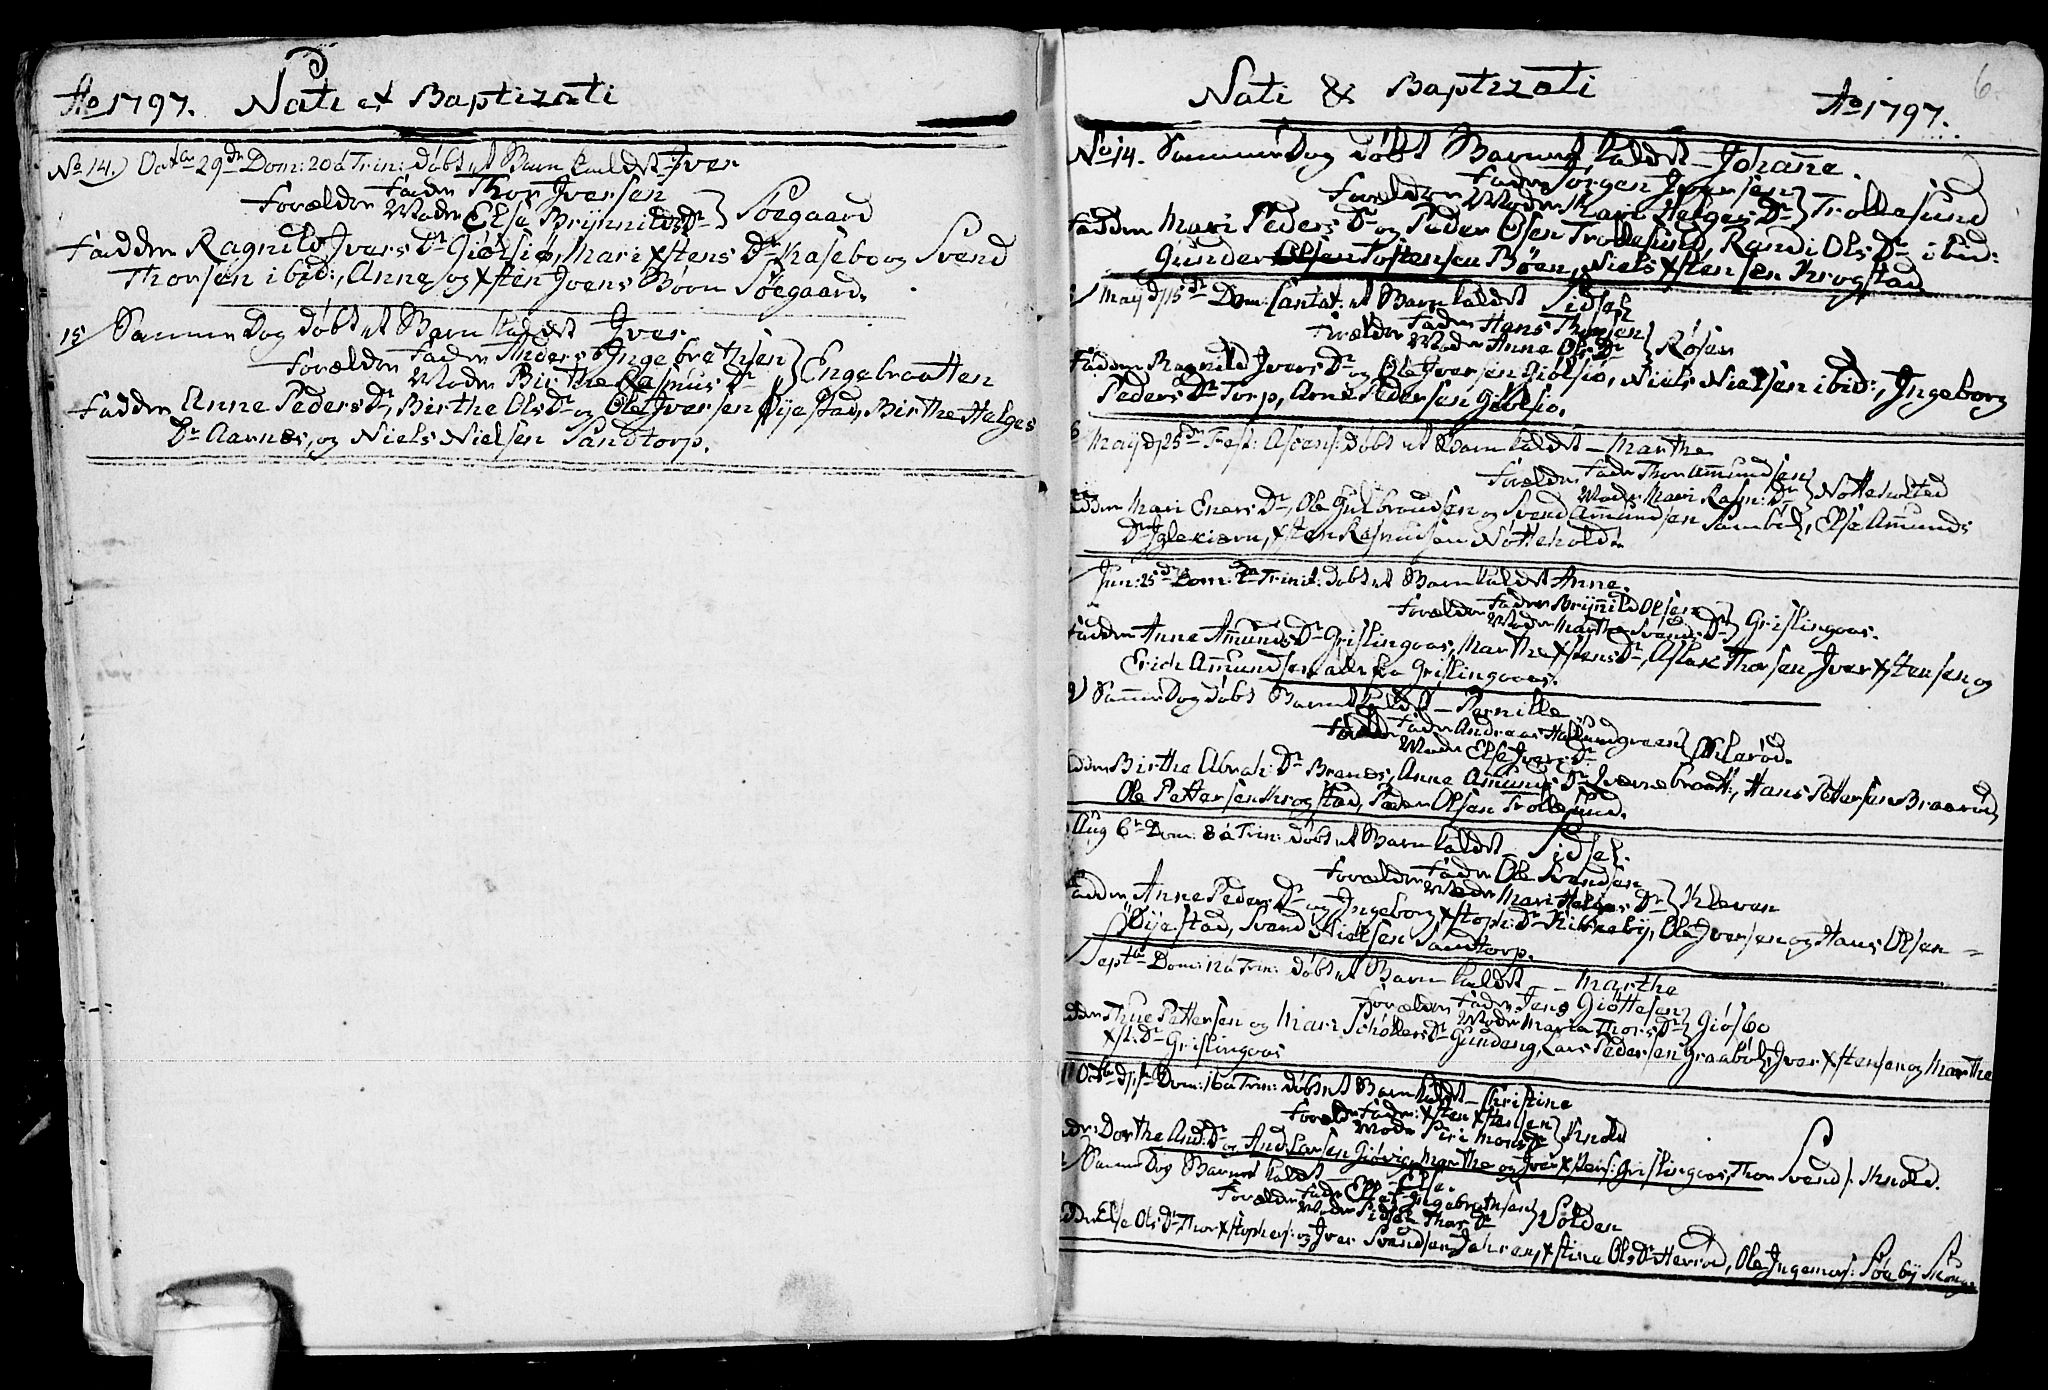 Ao 1797. Nati et Baptizati
No 14.) Octbr 29de Dom: 20 a Trin: døbt et Barn kaldet Iver
Forældre Fader Thor Iversen
Moder Else Brynnilds Dr } Søegaard
Faddere Ragnild Ivers Dr Giølsiø, Mari Xstens Dr Kasebo og Svend
Thorsen ibid:, Anne og Xsten Ivers Børn Søegaard.
15/ Samme Dag døbt et Barn kaldet Iver
Forældre Fader Anders Ingebrethsen
Moder Birthe Rasmus Dr } Engebraatten
Faddere Anne Peders Dr, Birthe Ols Dr og Ole Iversen Øijestad, Birthe Helges
Dr Aarnes, og Niels Nielsen Sandtorp.
Nati & Baptizati Ao 1797.
6
No 14. Samme Dag døbt Barnet kaldet Johane.
Forældre Fader Jørgen Iversen
Moder Mari Helges Dr } Trollesund
Faddere Mari Peders Dr og Peder Olsen Trollesund, Randi Ols Dr ibid:
Gunder Tostensen Böen, Niels Xstensen Krogstad
May d 15de Dom: Cantat: et Barn kaldet Sidsel
Forældre Fader Hans Thorsen
Moder Anne Ols Dr } Røsen
Faddere Ragnild Ivers Dr og Ole Iversen Giølsiø, Niels Nielsen ibid:, Ingeborg
Peders Dr Torp, Arne Pedersen Giølsiø.
Maij d 25de Fest: Ascens: døbt et Barn kaldet Marthe
Forældre Fader Thor Amundsen
Moder Mari Rasm: Dr } Nötteholted
Faddere Mari Eners Dr, Ole Gulbrandsen og Svend Amundsen Samböl, Else Amunds
Dr Iglekiærn, Xsten Rasmusen Nötteholdt.
Jun: 25de Dom: 2 Trinit: døbt et Barn kaldet Anne.
Forældre Fader Brynnild Olsen
Moder Marthe Svends Dr } Grislingaas.
Faddere Anne Amunds Dr Grislingaas, Marthe Xstens Dr, Aslak Thorsen Iver Xstensen og
Erich Amundsen alle fra Grislingaas.
Samme Dag døbt Barnet kaldet Pernille
Forældre Fader Andreas Hallundgreen
Moder Else Ivers Dr }
Faddere Birthe Abrah: Dr Brenæs, Anne Amunds Dr Qværnebraatt:, Hans Pettersen Braarud
Ole Pettersen Krogstad, Peder Olsen Trollesund.
Aug 6te Dom: 8 a Trin: døbt et Barn kaldet Sidsel.
Forældre Fader Ole Svendsen
Moder Mari Helges Dr } Kleven
Faddere Anne Peders Dr og Ingeborg Xstoph: Dr Kirkebÿ, Ole Iversen og Hans Olsen
Øijestad, Svend Nielsen Sandtorp.
Septb Dom: 12 a Trin: døbt et Barn kaldet Marthe
Forældre Fader Jens Giøttesen
Moder Maria Thors Dr } Giøsbo
Thue Pettersen og Mari Schöllers Dr Gundeng, Lars Pedersen Graaböl, Iver Xstensen og Marthe
Xst: Dr Grislingaas
Octb d 1ste Dom: 16 a Trin: døbt et Barn kaldet Christine
Forældre Fader: Xsten Xstensen
Moder Siri Mons Dr } Knold
Dorthe And: Dr og And: Larsen Giövig, Marthe og Iver Xstens: Grislingaas, Thor Svends: Knold.
Samme Dag Barnet kaldet Else.
Forældre Fader Ellef Ingebrethsen
Moder Sidsel Thor Dr } Solden
Else Ols Dr Thor Xstophers: og Iver Svendsen Jahren, Xstine Ols Dr Herröd, Ole Ingemars: Søebÿ